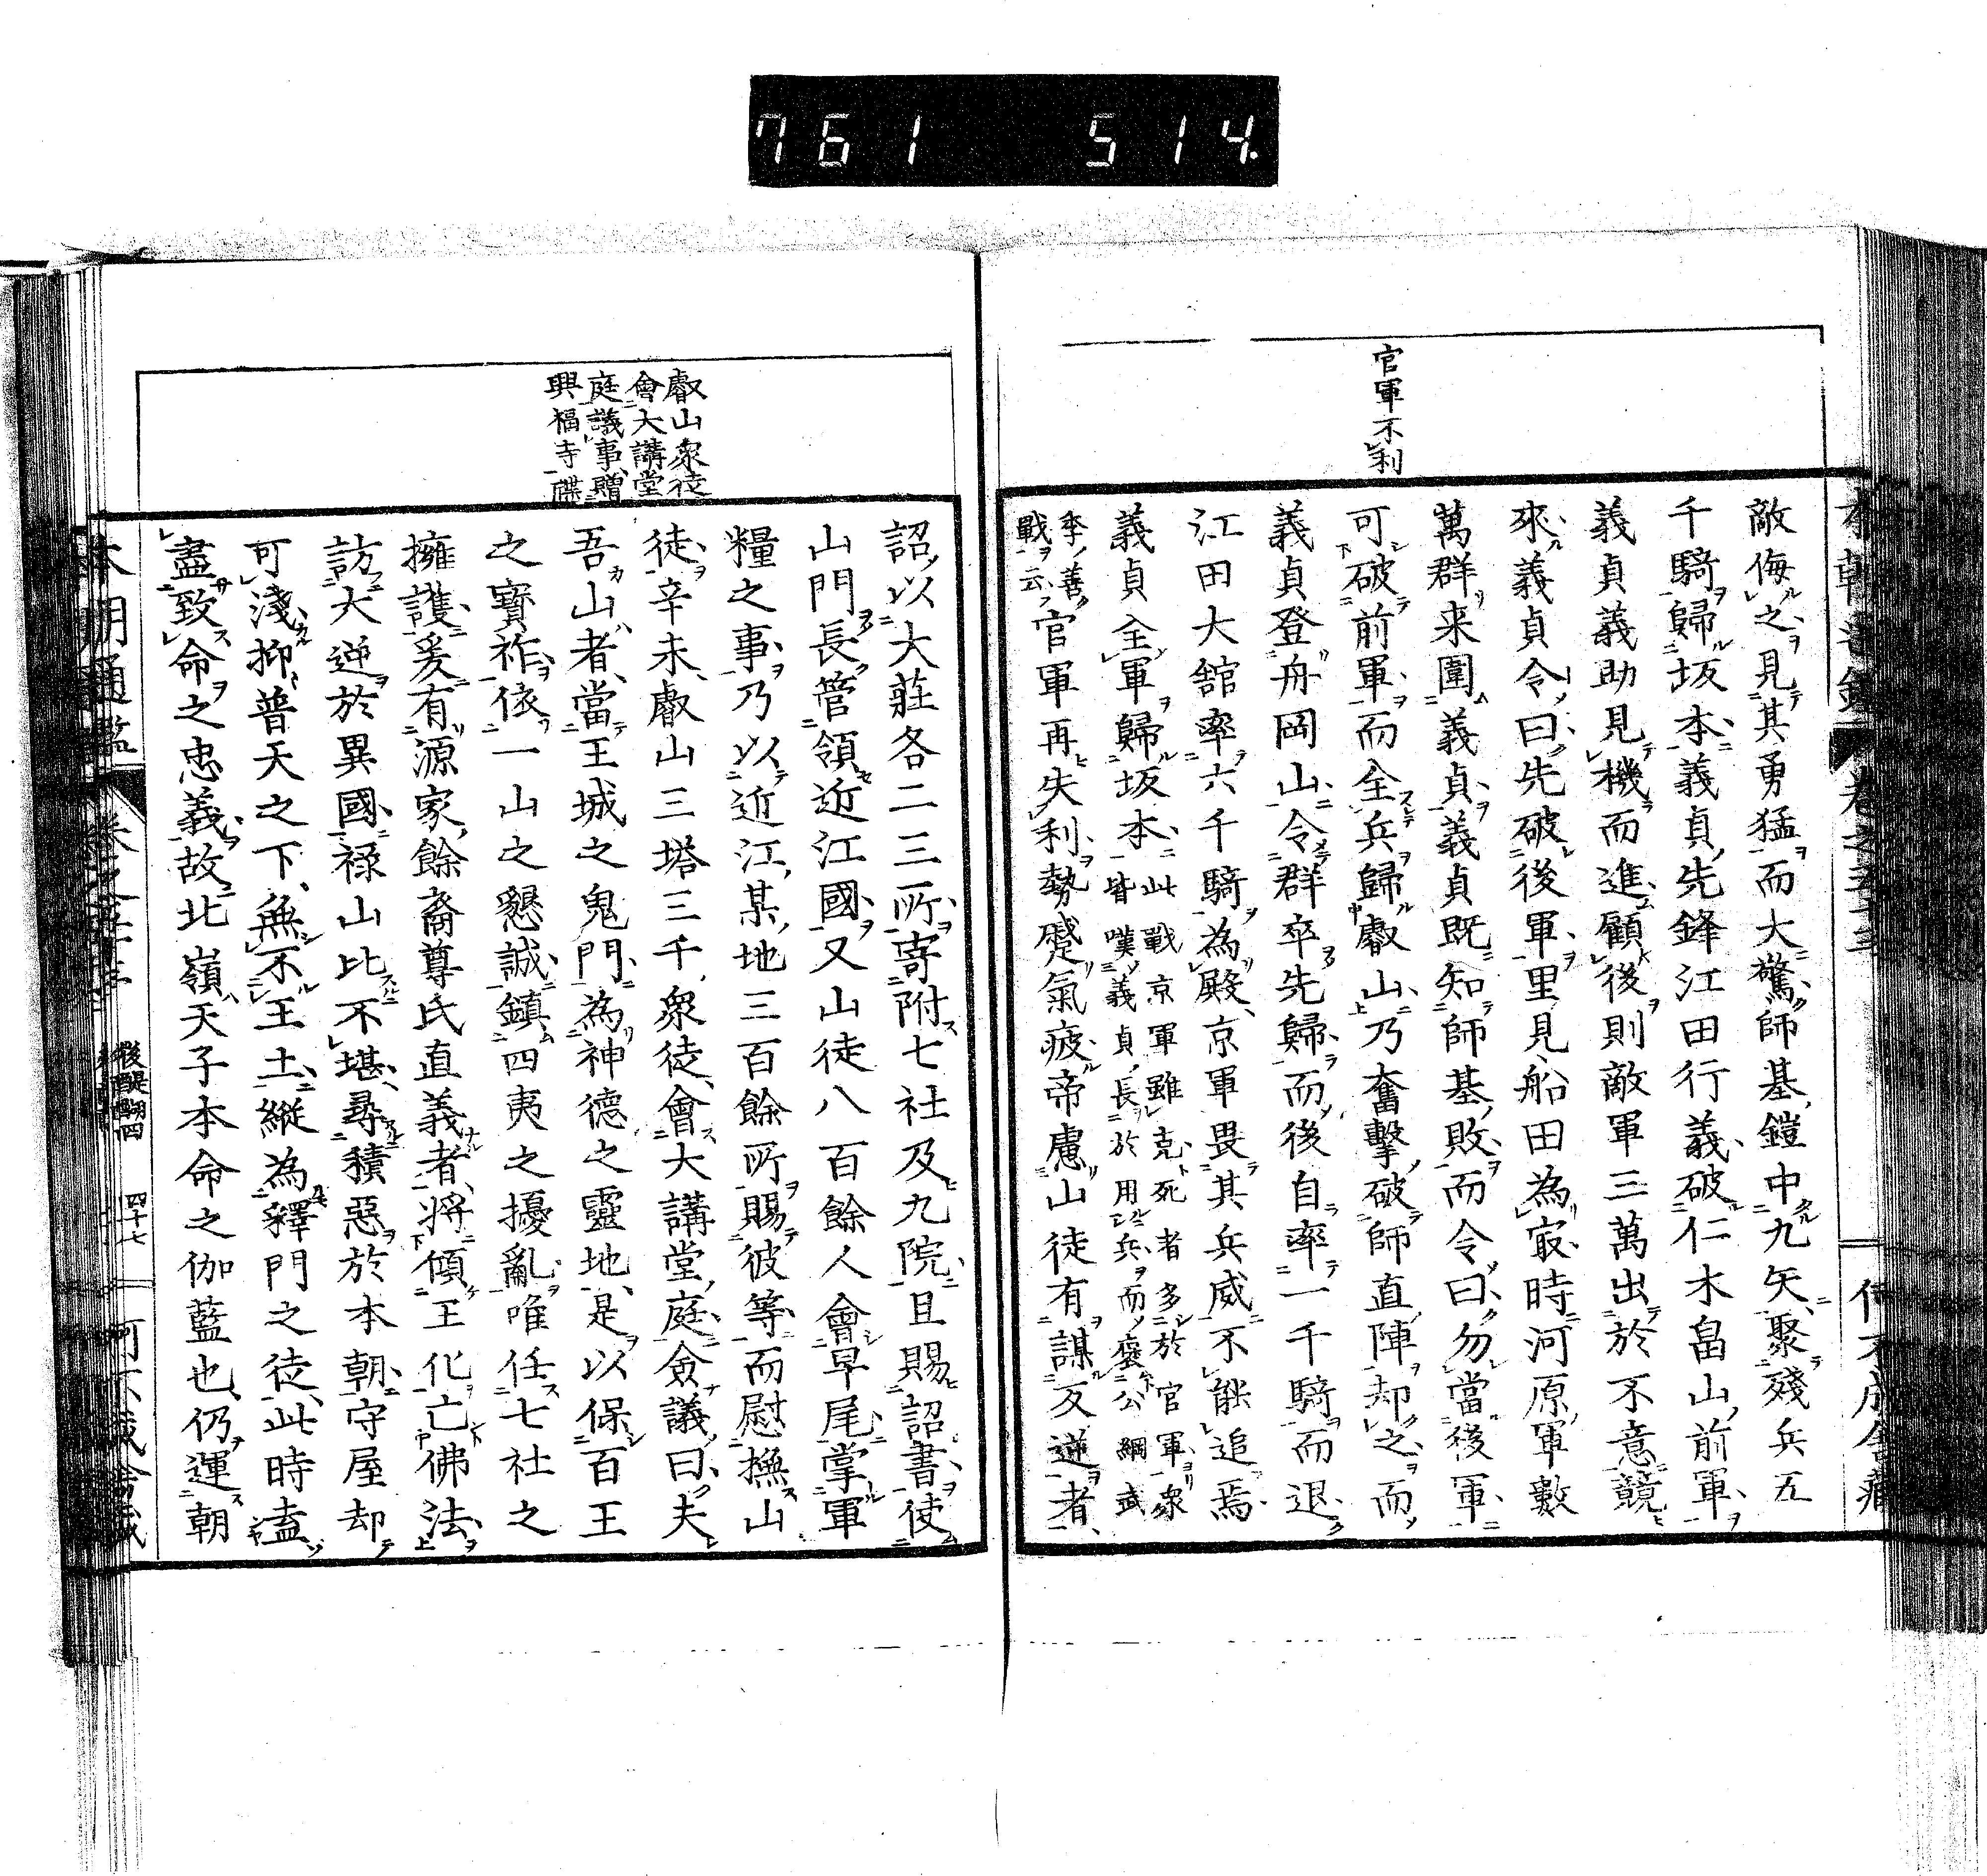 761 514.
官軍不利
敵侮之見其勇猛而大驚師基鎧中九矢聚殘兵五
千騎歸坂本義貞先鋒江田行義破仁木畠山前軍
義貞義助見機而進顧後則敵軍三萬出於不意競
來義貞令曰先破後軍里見船田為㝡時河原軍數
萬群来圍義貞義貞既知師基敗而令曰勿當後軍
可破前軍而全兵歸叡山乃奮擊破師直陣却之而
義貞登舟岡山令群卒先歸而後自率一千騎而退
江田大舘率六千騎為殿京軍畏其兵威不能追焉
義貞全軍歸坂本此戰京軍雖克死者多於官軍衆
皆嘆義貞長於用兵而褒公綱武
季善戰云官軍再失利勢蹙氣疲帝慮山徒有謀反逆者
叡山衆徒
會大講堂
庭議事贈
興福寺牒
詔以大莊各二三所寄附七社及九院且賜詔書使
山門長管領近江國又山徒八百餘人會早尾掌軍
糧之事乃以近江某地三百餘所賜彼等而慰撫山
徒辛未叡山三塔三千衆徒會大講堂庭僉議曰夫
吾山者當王城之鬼門為神德之靈地是以保百王
之寶祚依一山之懇誠鎮四夷之擾亂唯任七社之
擁護爰有源家餘裔尊氏直義者將傾王化亡佛法
訪大逆於異國祿山比不堪尋積惡於本朝守屋却
可淺抑普天之下無不王土縱為釋門之徒此時盍
盡致命之忠義故北嶺天子本命之伽藍也仍運朝
後醍醐四 四十七